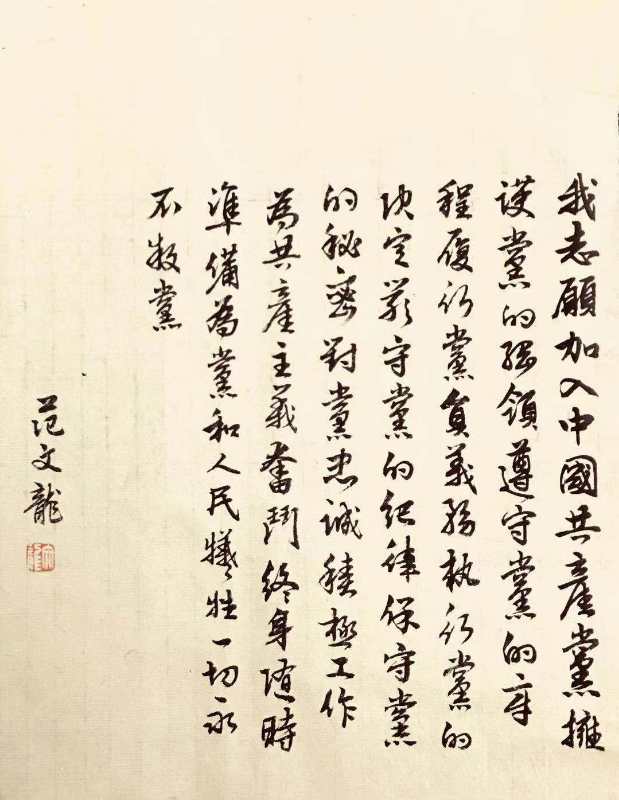 我志願加入中國共產黨擁
護黨的綱領遵守黨的章
程履行黨員義務執行黨的
決定嚴守黨的紀律保守黨
的秘密對黨忠誠積極工作
為共產主義奮鬥終身隨時
準備為黨和人民犧牲一切永
不叛黨
范文龍